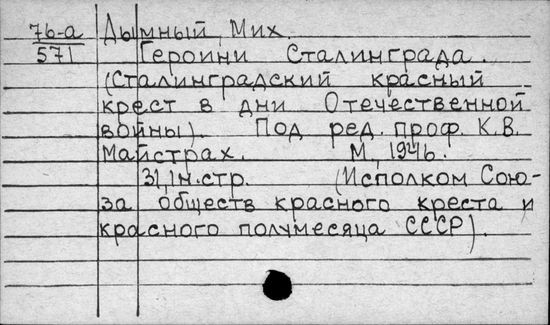 76-а Дымный, Мих.
571 Героини Сталинграда.
(Сталинградский красный
крест в дни Отечественной
войны). Под ред. проф. К.В.
Майстрах. М., 1946.
31, 1н. стр. (Исполком Сою-
за обществ красного креста и
красного полумесяца СССР).